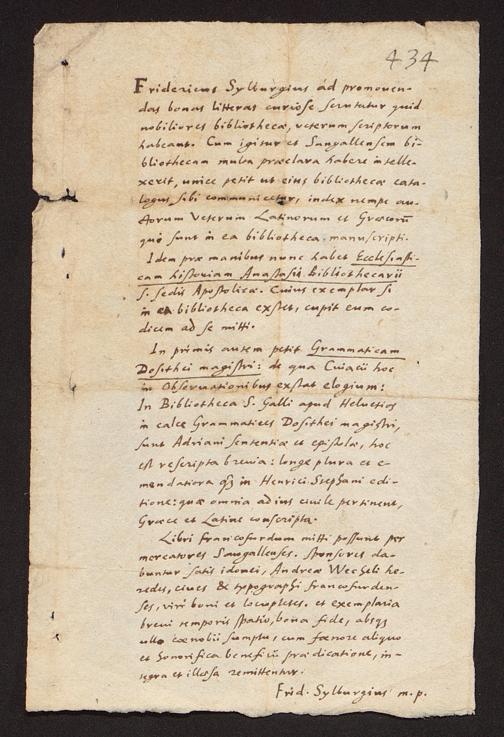 434
Fridericus Sylburgius ad promouen-
das bonas litteras curiose scrutatur quid
nobiliores bibliothecæ, veterum scriptorum
habeant. Cum igitur et Sangallensem bi-
bliothecam multa præclara habere intelle-
xerit, unice petit ut eius bibliothecæ cata-
logus sibi communicetur, index nempe au-
ctorum veterum Latinorum et Græcorū
qui sunt in ea bibliotheca manuscripti.
Idem præ manibus nunc habet Ecclesiasti-
cam historiam Anastasii Bibliothecarii
S. sedis Apostolicæ. Cuius exemplar si
in ea bibliotheca exstet, cupit eum co-
dicem ad se mitti.
In primis autem petit Grammaticam
Dosithei magistri: de qua Cuiacii hoc
in Observationibus exstat elogium:
In Bibliotheca S. Galli apud Helvetios
in calce Grammatices Dosithei magistri,
sunt Adriani sententiæ et epistolæ, hoc
est rescripta brevia: longe plura et e-
mendatiora q̃ in Henrici Stephani edi-
tione: quæ omnia ad ius civile pertinent,
Græce et Latine conscripta.
Libri Francofurdum mitti possunt per
mercatores Sangallenses. Sponsores da-
buntur satis idonei, Andreæ Wecheli he-
redes, cives & typographi francofurden-
ses, viri boni et locupletes. et exemplaria
brevi temporis spatio, bona fide, absq;
ullo cœnobii sumptu, cum fœnore aliquo
et honorifica beneficii prædicatione, in-
tegra et illæsa remittentur.
Frid. Sylburgius m. p.